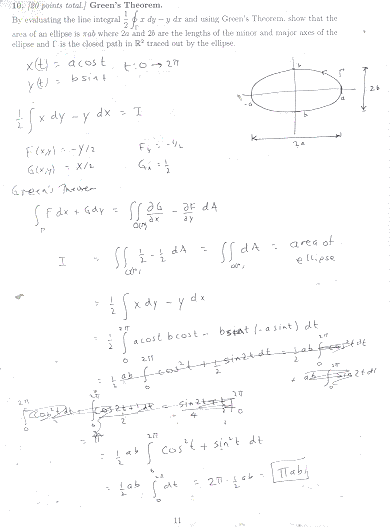 10. [20 points total.] Green's Theorem.
By evaluating the line integral 1/2 ∮_Γ x dy − y dx and using Green's Theorem, show that the
area of an ellipse is πab where 2a and 2b are the lengths of the minor and major axes of the
ellipse and Γ is the closed path in R² traced out by the ellipse.
x(t) = a cos t t: 0 → 2π
y(t) = b sin t
b Γ
-a a 2b
b
2a
1/2 ∫ x dy − y dx = I
F(x,y) = -y/2 F_y = -1/2
G(x,y) = x/2 G_x = 1/2
Green's Theorem
∫_Γ F dx + G dy = ∬ ∂G/∂x − ∂F/∂y dA
I = ∬ 1/2 - -1/2 dA = ∬ dA = area of
ellipse
= 1/2 ∫ x dy − y dx
= 1/2 ∫_0^2π a cos t b cos t − b sin t (-a sin t) dt
= 1/2 ab ∫_0^2π cos²t + sin²t dt
= 1/2 ab ∫_0^2π dt = 2π · 1/2 ab = πab
11